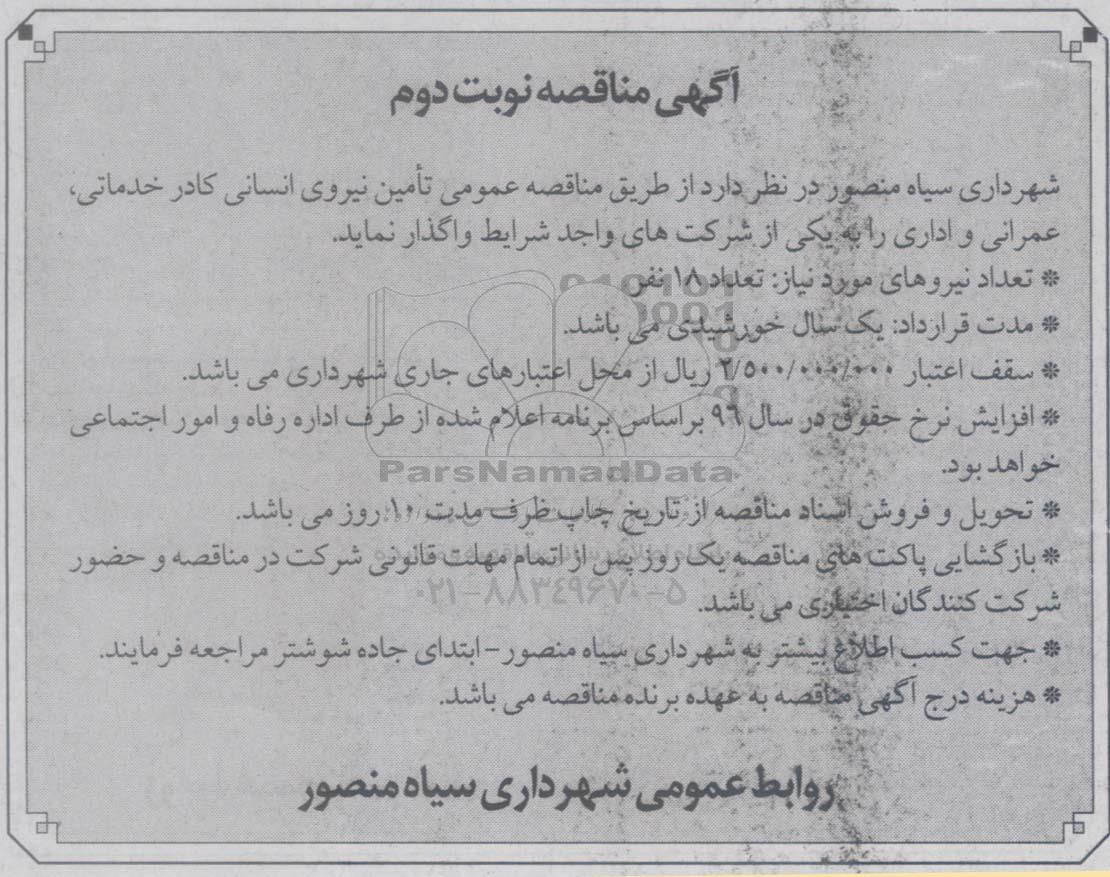 آگهی مناقصه نوبت دوم
شهرداری سیاه منصور در نظر دارد از طریق مناقصه عمومی تأمین نیروی انسانی کادر خدماتی،
عمرانی و اداری را به یکی از شرکت های واجد شرایط واگذار نماید.
* تعداد نیروهای مورد نیاز: تعداد ۱۸ نفر
* مدت قرارداد: یک سال خورشیدی می باشد.
* سقف اعتبار ۲/۵۰۰/۰۰۰/۰۰۰ ریال از محل اعتبارهای جاری شهرداری می باشد.
* افزایش نرخ حقوق در سال ۹۶ براساس برنامه اعلام شده از طرف اداره رفاه و امور اجتماعی
خواهد بود.
ParsNamadData
* تحویل و فروش اسناد مناقصه از تاریخ چاپ ظرف مدت ۱۰ روز می باشد.
* بازگشایی پاکت های مناقصه یک روز پس از اتمام مهلت قانونی شرکت در مناقصه و حضور
۰۲۱-۸۸۳۴۹۶۷۰-۵
شرکت کنندگان اختیاری می باشد.
* جهت کسب اطلاع بیشتر به شهرداری سیاه منصور - ابتدای جاده شوشتر مراجعه فرمایند.
* هزینه درج آگهی مناقصه به عهده برنده مناقصه می باشد.
روابط عمومی شهرداری سیاه منصور